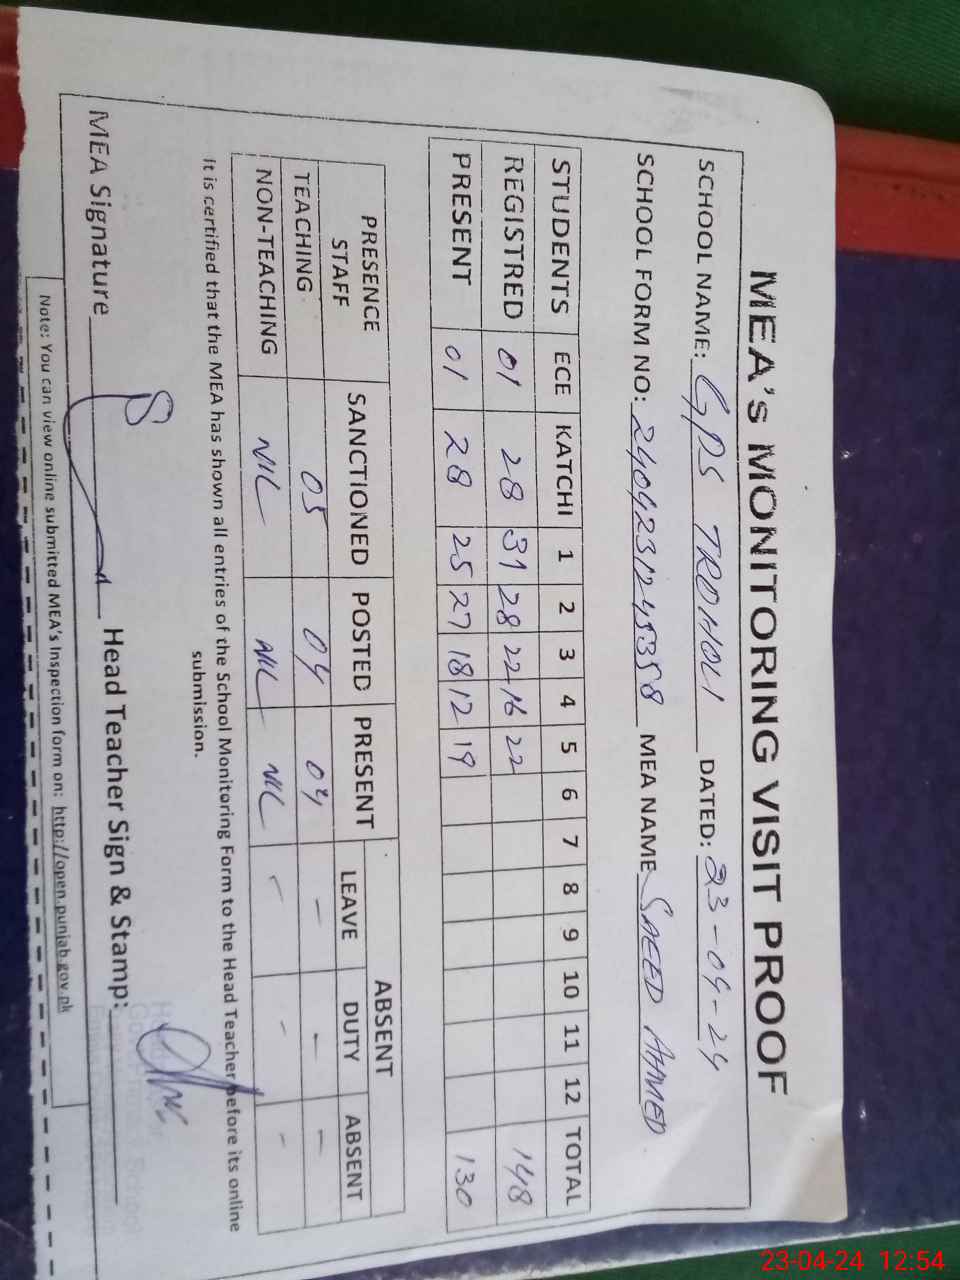 MEA's MONITORING VISIT PROOF
SCHOOL NAME: GPS TRDHOLI DATED: 23-04-24
SCHOOL FORM NO: 2404231245358 MEA NAME SAEED AHMED
STUDENTS ECE KATCHI 1 2 3 4 5 6 7 8 9 10 11 12 TOTAL
REGISTRED 01 28 31 28 22 16 22 148
PRESENT 01 28 25 27 18 12 19 130
PRESENCE STAFF SANCTIONED POSTED PRESENT ABSENT
LEAVE DUTY ABSENT
TEACHING 05 04 04 - - -
NON-TEACHING NIL NIL NIL - - -
It is certified that the MEA has shown all entries of the School Monitoring Form to the Head Teacher before its online
submission.
MEA Signature Head Teacher Sign & Stamp:
Note: You can view online submitted MEA's Inspection form on: http://open.punjab.gov.pk
23-04-24 12:54